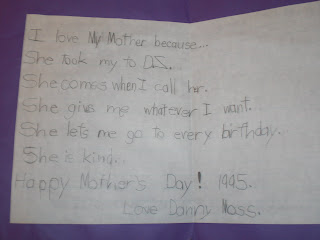 I love My Mother because...
She took my to DZ...
She comes when I call her.
She givs me whatever I want...
She lets me go to every birthday.
She is kind...
Happy Mother's Day! 1995.
Love Danny Moss.